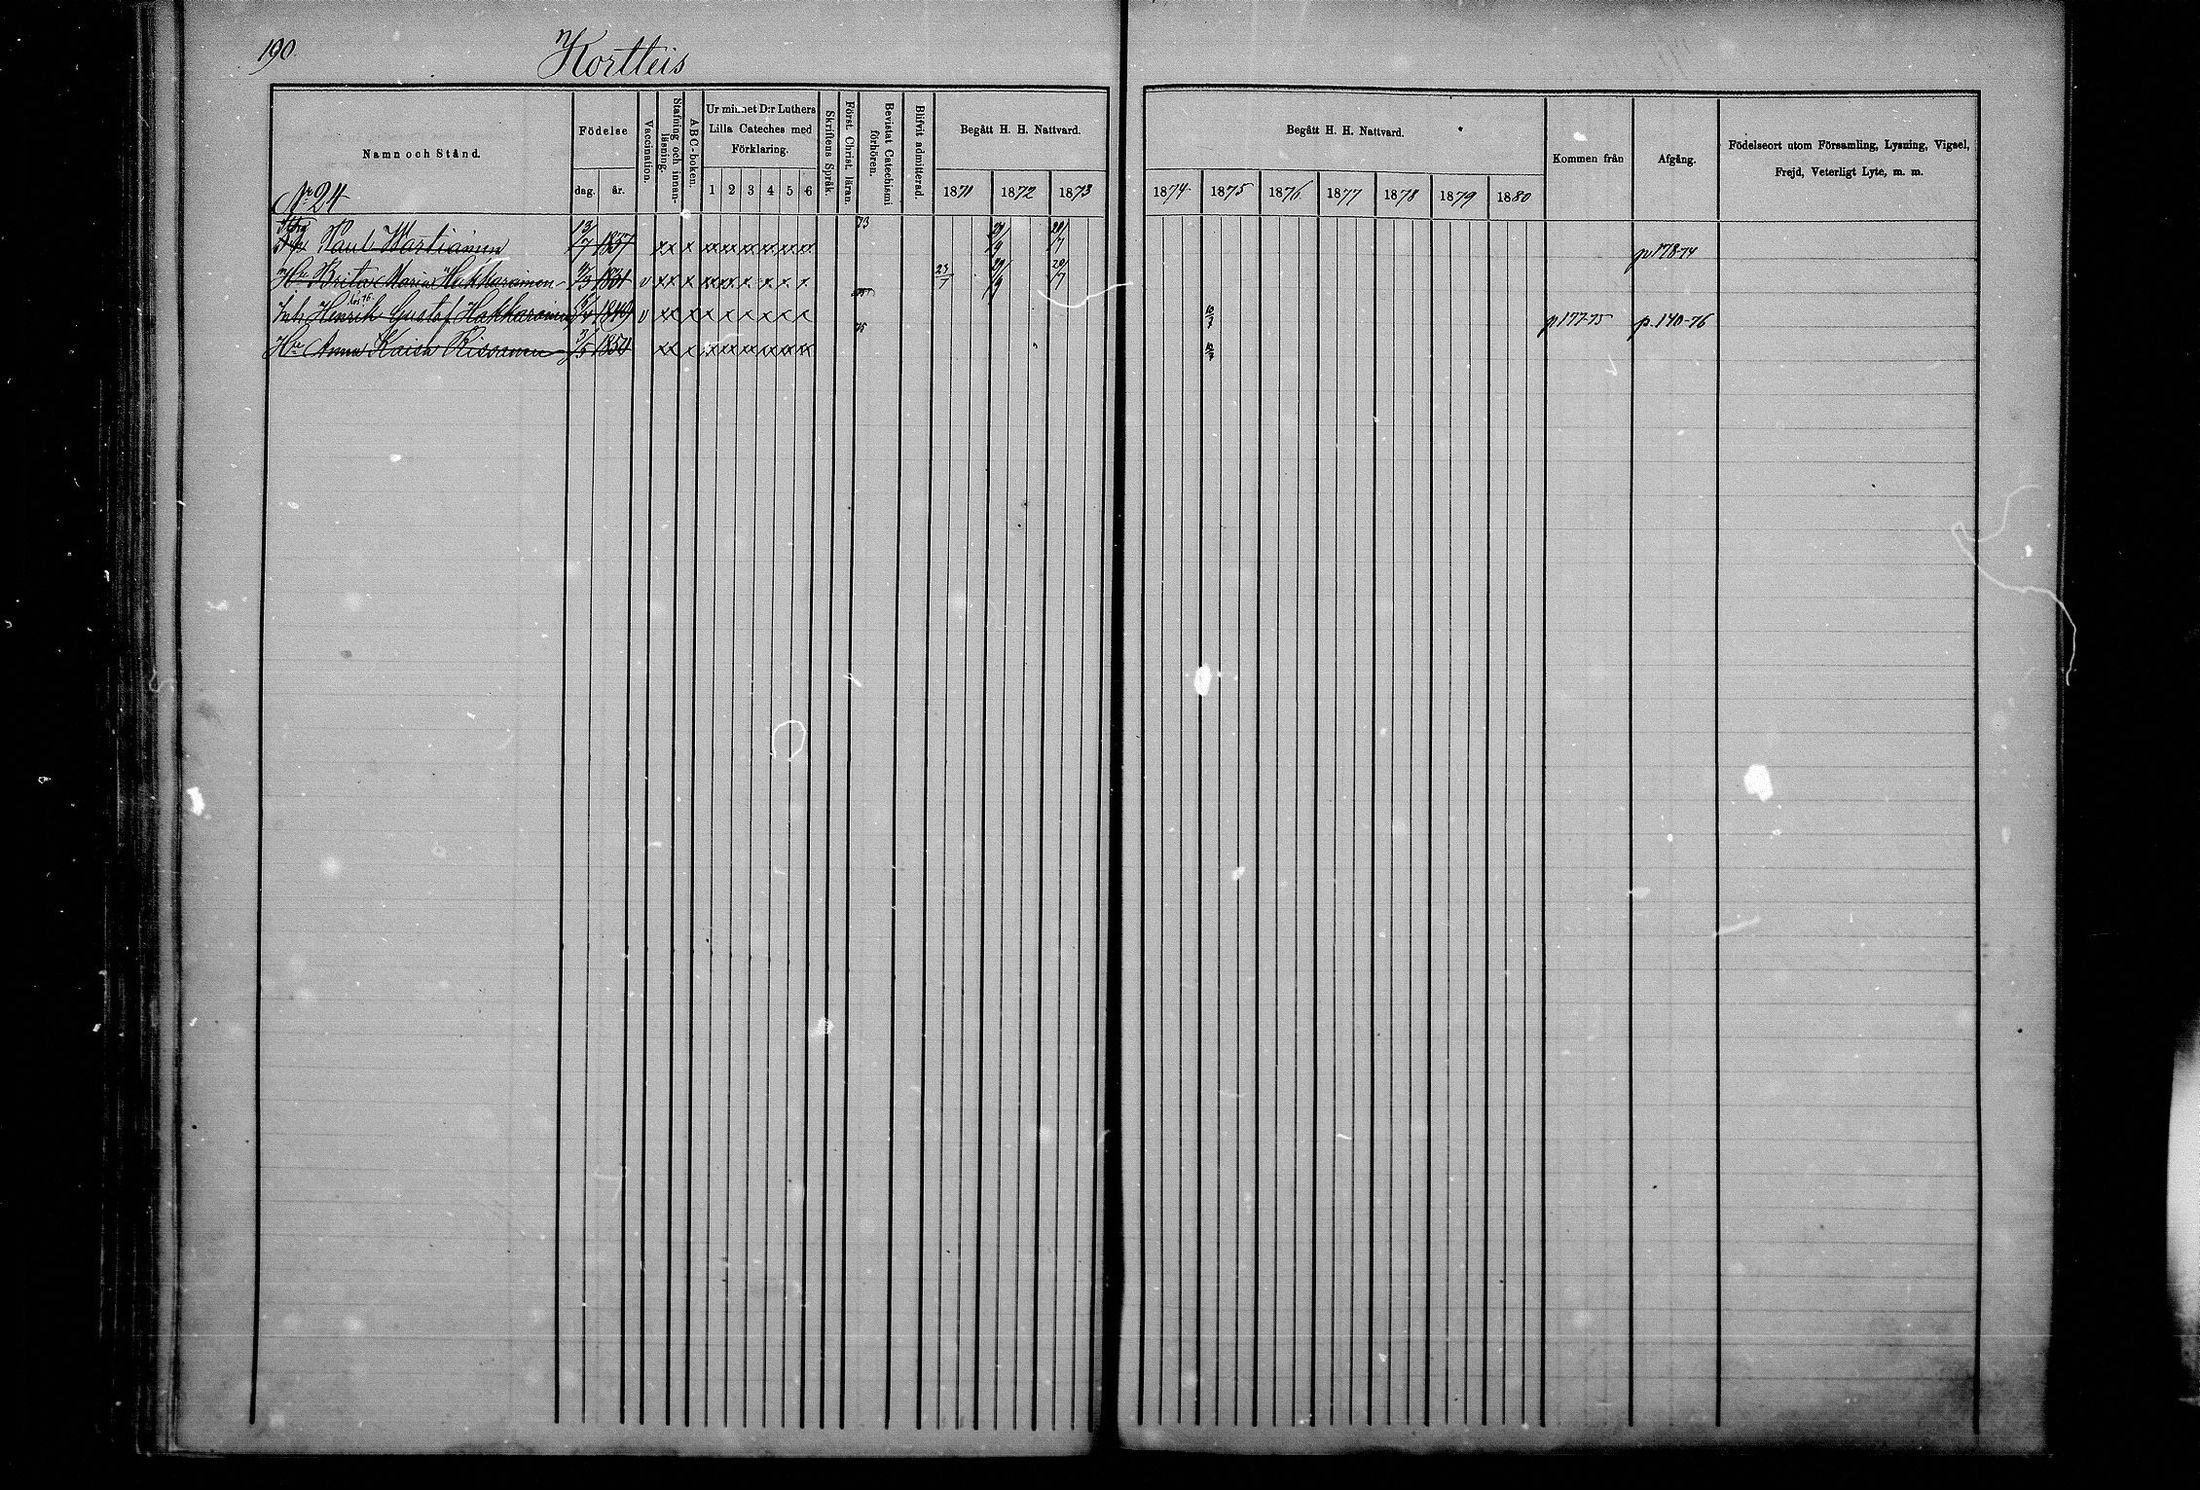 190.
Kortteis
Namn och Stånd.
Födelse
dag. år.
Vaccination.
Stafning och innan-läsning.
ABC-boken.
Ur minnet D:r Luthers Lilla Cateches med Förklaring.
1 2 3 4 5 6
Skriftens Språk.
Först. Christ. läran.
Bevistat Catechismi förhören.
Blifvit admitterad.
Begått H. H. Nattvard.
1871 1872 1873
Begått H. H. Nattvard.
1874 1875 1876 1877 1878 1879 1880
Kommen från
Afgång.
Födelseort utom Församling, Lysning, Vigsel, Frejd, Veterligt Lyte, m. m.
N:o 24
Paul Martiainen 13/7 1837 xx x xx xx xx xx xx xx 73 p 178-74
Hu Brita Maria Hakkarainen 1831 v xx x 23/7
Henrik Gustaf Hakkarainen 1849 v xx x x x x x x x p 177-75 p. 140-76
Hu Anna Kaisa Rissanen 3/5 1854 xx x 75